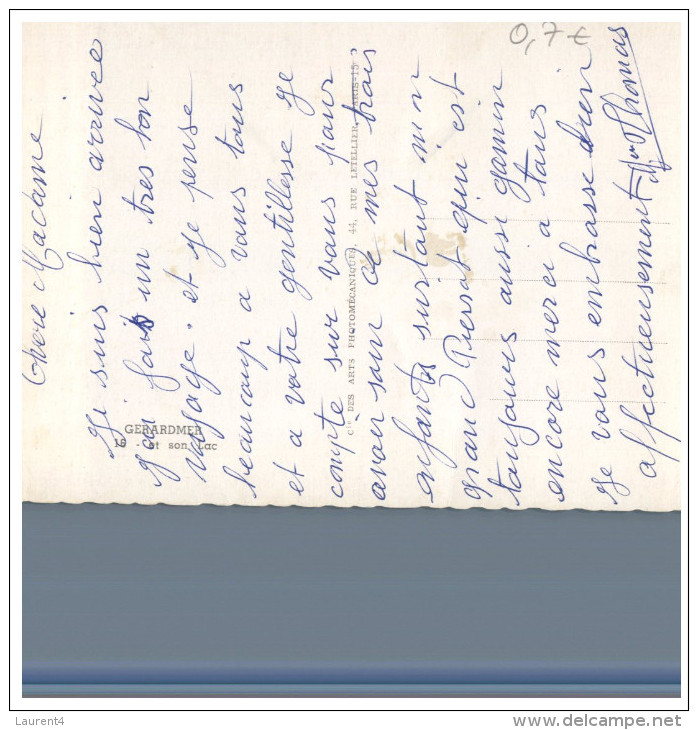 Chere Madame.
Ji suis bien arrivée
j'ai fait un tres bon
voyage. et je pense
beaucoup a vous tous
et a votre gentillesse je
compte sur vous pour
avoir soin de mes trois
enfants surtout mon
grand Pierrot qui est
toujours aussi gamin
encore merci a tous.
je vous embrasse bien
affectueusement Mme Thomas
GERARDMER
16 - et son Lac
Cie DES ARTS PHOTOMÉCANIQUES, 44, RUE LETELLIER, PARIS-15e
0,7 €
Laurent4
www.delcampe.net